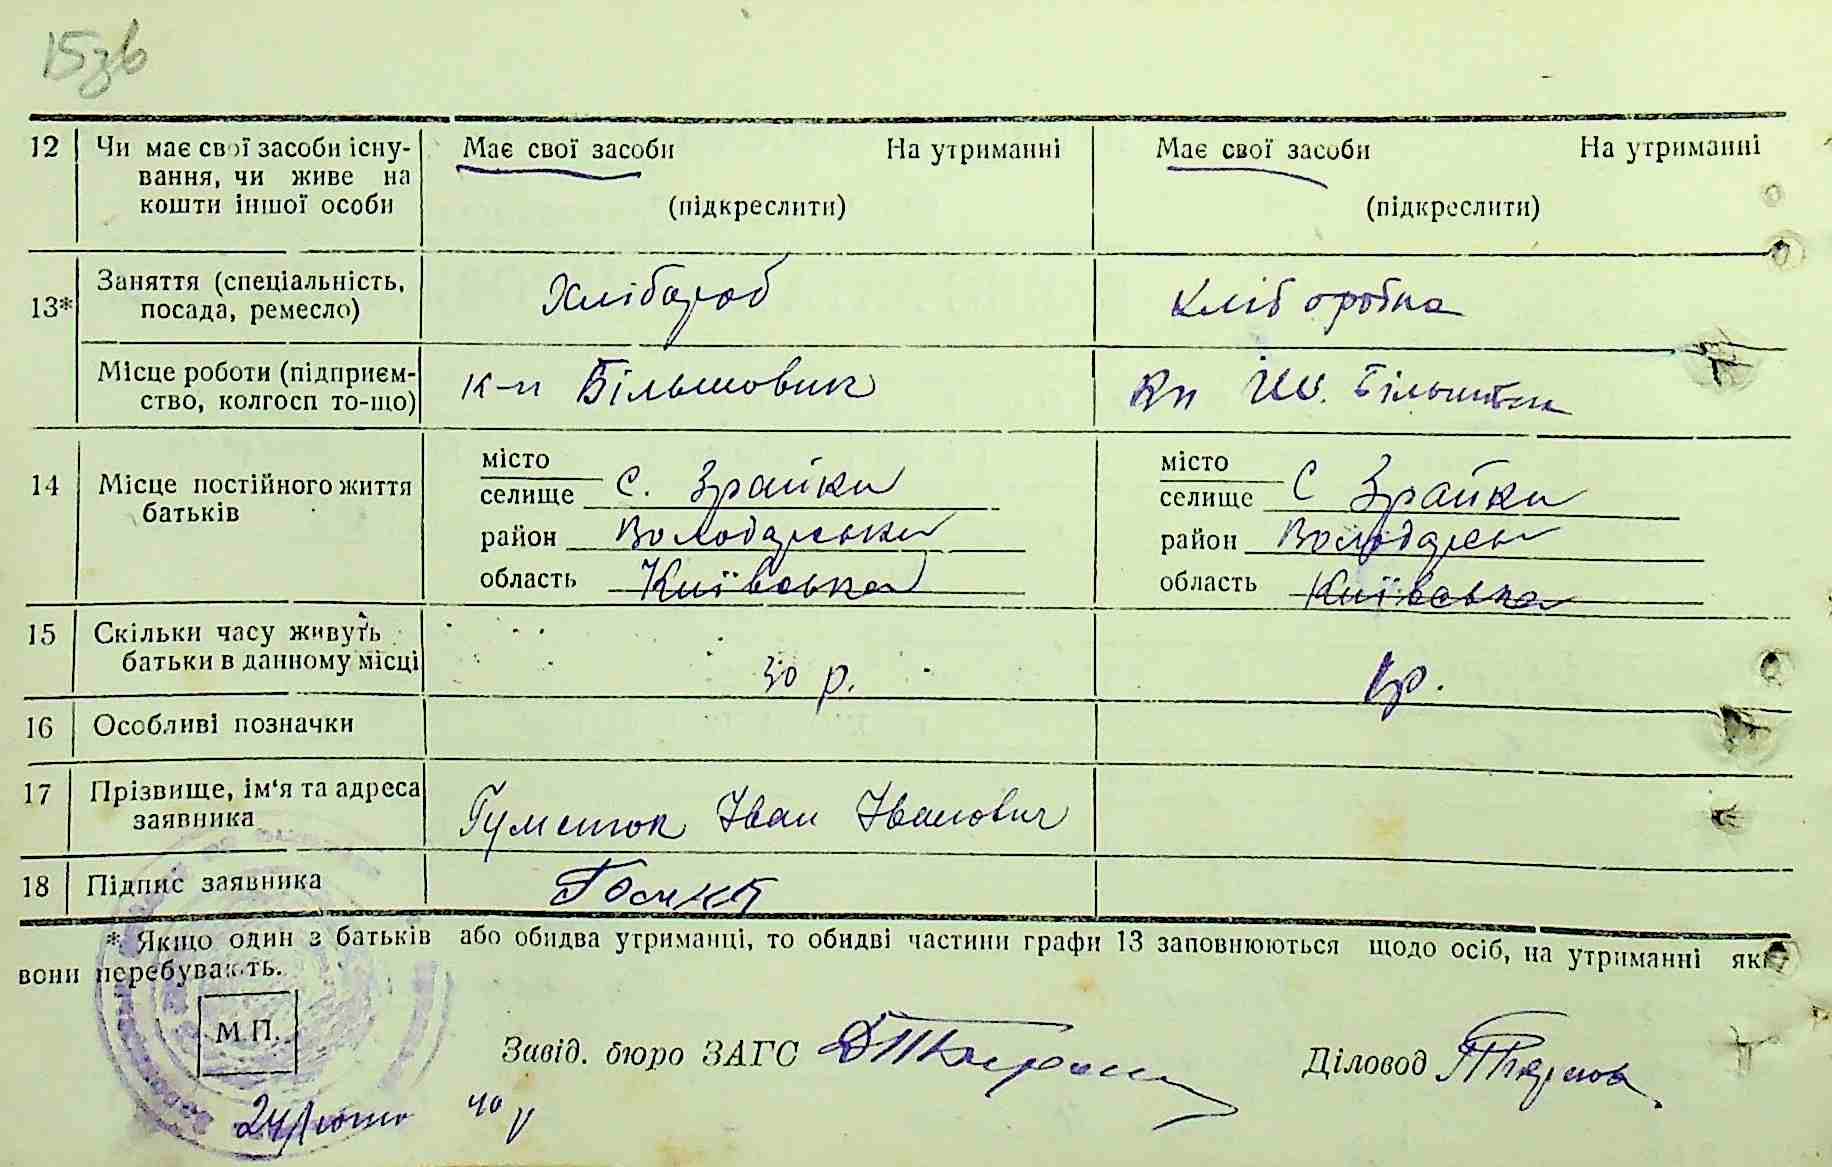 15зв
12 Чи має свої засоби існу- Має свої засоби На утриманні Має свої засоби На утриманні
вання, чи живе на
кошти іншої особи (підкреслити) (підкреслити)
13* Заняття (спеціальність, Хлібороб Хліборобка
посада, ремесло)
Місце роботи (підприєм- к-п Більшовик Кп Більшовик
ство, колгосп то-що)
місто місто
14 Місце постійного життя селище с. Зрайки селище с Зрайки
батьків район Володарський район Володарськ
область Київська область Київська
15 Скільки часу живуть
батьки в данному місці 30 р. р.
16 Особливі позначки
17 Прізвище, ім'я та адреса
заявника Іван Іванович
18 Підпис заявника
* Якщо один з батьків або обидва утриманці, то обидві частини графи 13 заповнюються щодо осіб, на утриманні яких
вони перебувають.
М.П.
Завід. бюро ЗАГС Діловод
24/лютого 40 р